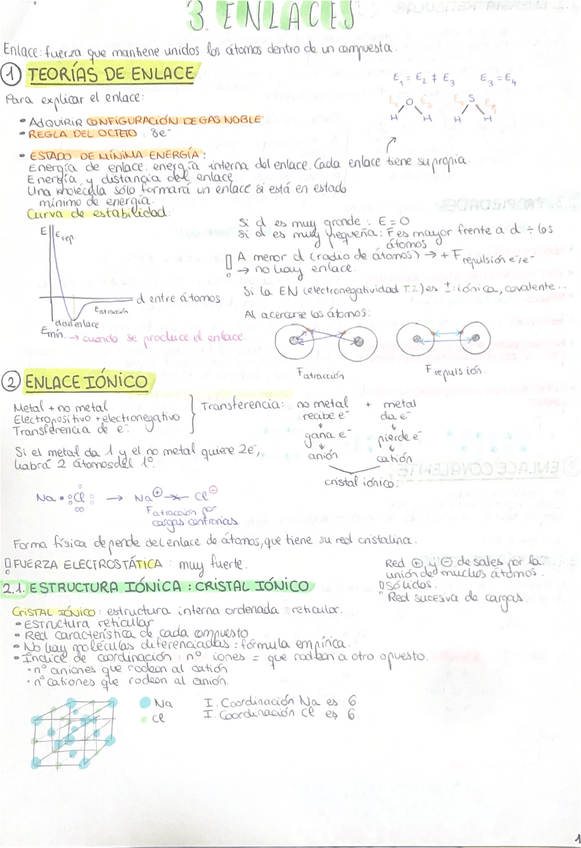 3. ENLACES
Enlace: fuerza que mantiene unidos los átomos dentro de un compuesta.
① TEORÍAS DE ENLACE
E₁ = E₂ ≠ E₃ E₃ = E₄
Para explicar el enlace:
• ADQUIRIR CONFIGURACIÓN DE GAS NOBLE
• REGLA DEL OCTETO: 8e⁻
O S
H H H H
• ESTADO DE MÍNIMA ENERGÍA:
Energía de enlace: energía interna del enlace. Cada enlace tiene su propia.
Energía y distancia del enlace
Una molécula sólo formará un enlace si está en estado
mínimo de energía.
Curva de estabilidad:
E Erep.
d entre átomos
Eatracción
d de enlace
Emín. → cuando se produce el enlace
Si d es muy grande: E = 0
Si d es muy pequeña: F es mayor frente a d ÷ los
átomos
A menor d (radio de átomos) → + Frepulsión e⁻/e⁻
→ no hay enlace.
Si la EN (electronegatividad T2) es ±: iónica, covalente...
Al acercarse los átomos:
Fatracción Frepulsión.
② ENLACE IÓNICO
Metal + no metal
Electropositivo + electronegativo
Transferencia de e⁻
Transferencia: no metal + metal
recibe e⁻ da e⁻
gana e⁻ pierde e⁻
anión catión
cristal iónico.
Si el metal da 1 y el no metal quiere 2e⁻,
habrá 2 átomos del 1º.
Na • Cl → Na⊕ Cl⊖
Fatracción por
cargas contrarias.
Forma física depende del enlace de átomos, que tiene su red cristalina.
FUERZA ELECTROSTÁTICA: muy fuerte.
Red ⊕ y ⊖ de sales por la
unión de muchos átomos.
Sólidos.
Red sucesiva de cargas.
2.1. ESTRUCTURA IÓNICA: CRISTAL IÓNICO
CRISTAL IÓNICO: estructura interna ordenada reticular.
• Estructura reticular
• Red característica de cada compuesto
• No hay moléculas diferenciadas: fórmula empírica.
• Índice de coordinación: nº iones = que rodean a otro opuesto.
• nº aniones que rodean al catión
• nº cationes que rodean al anión.
Na I. Coordinación Na es 6
Cl I. Coordinación Cl es 6
1